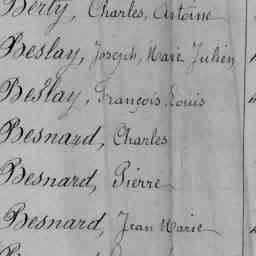 Berty, Charles, Antoine
Beslay, Joseph, Marie Julien
Beslay, François Louis
Besnard, Charles
Besnard, Pierre
Besnard, Jean Marie